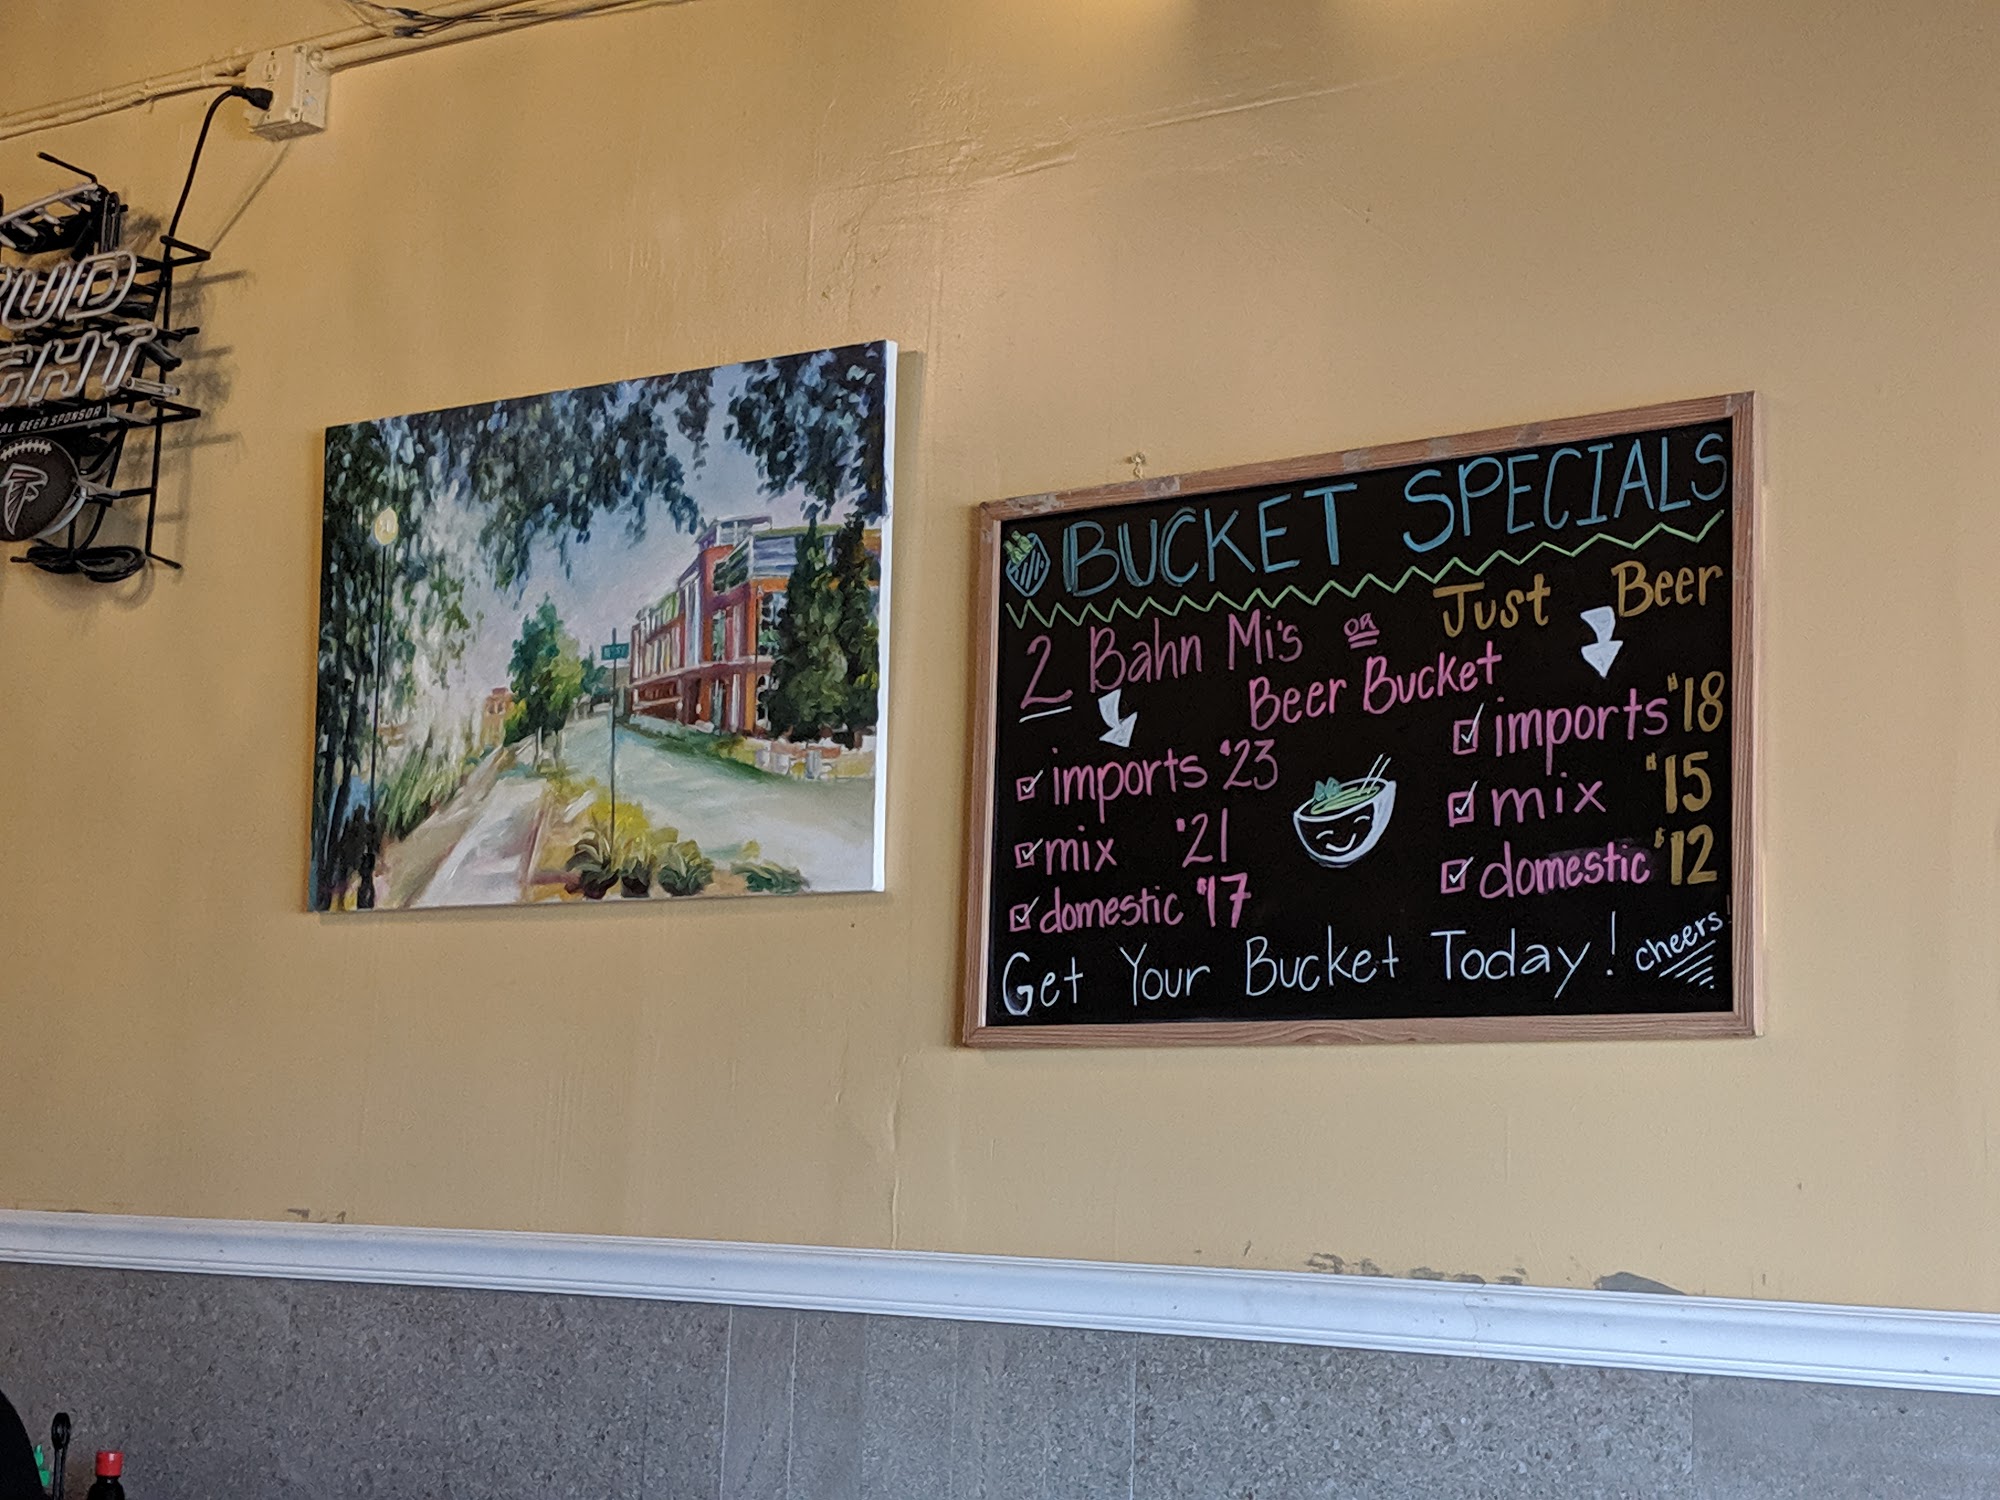 UD
GHT
AL BEER SPONSOR
BUCKET SPECIALS
2 Bahn Mi's OR Just Beer
Beer Bucket
imports $23
mix $21
domestic $17
imports $18
mix $15
domestic $12
Get Your Bucket Today! cheers!